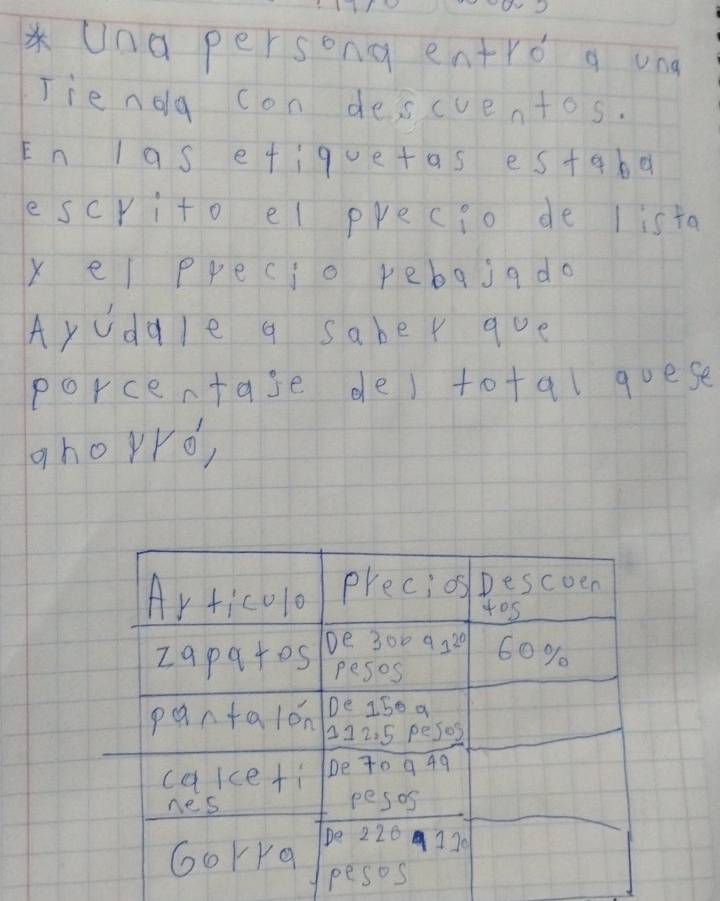 * Una persona entró a una
Tienda con descuentos.
En las etiquetas estaba
escrito el precio de lista
y el precio rebajado
Ayúdale a saber que
porcentaje del total que se
ahorró,
Artículo Precios Descuen
tos
zapatos De 300 a 120 60%
pesos
pantalón De 150 a
112.5 pesos
calceti De 70 a 49
nes pesos
Gorra De 220 a 110
pesos